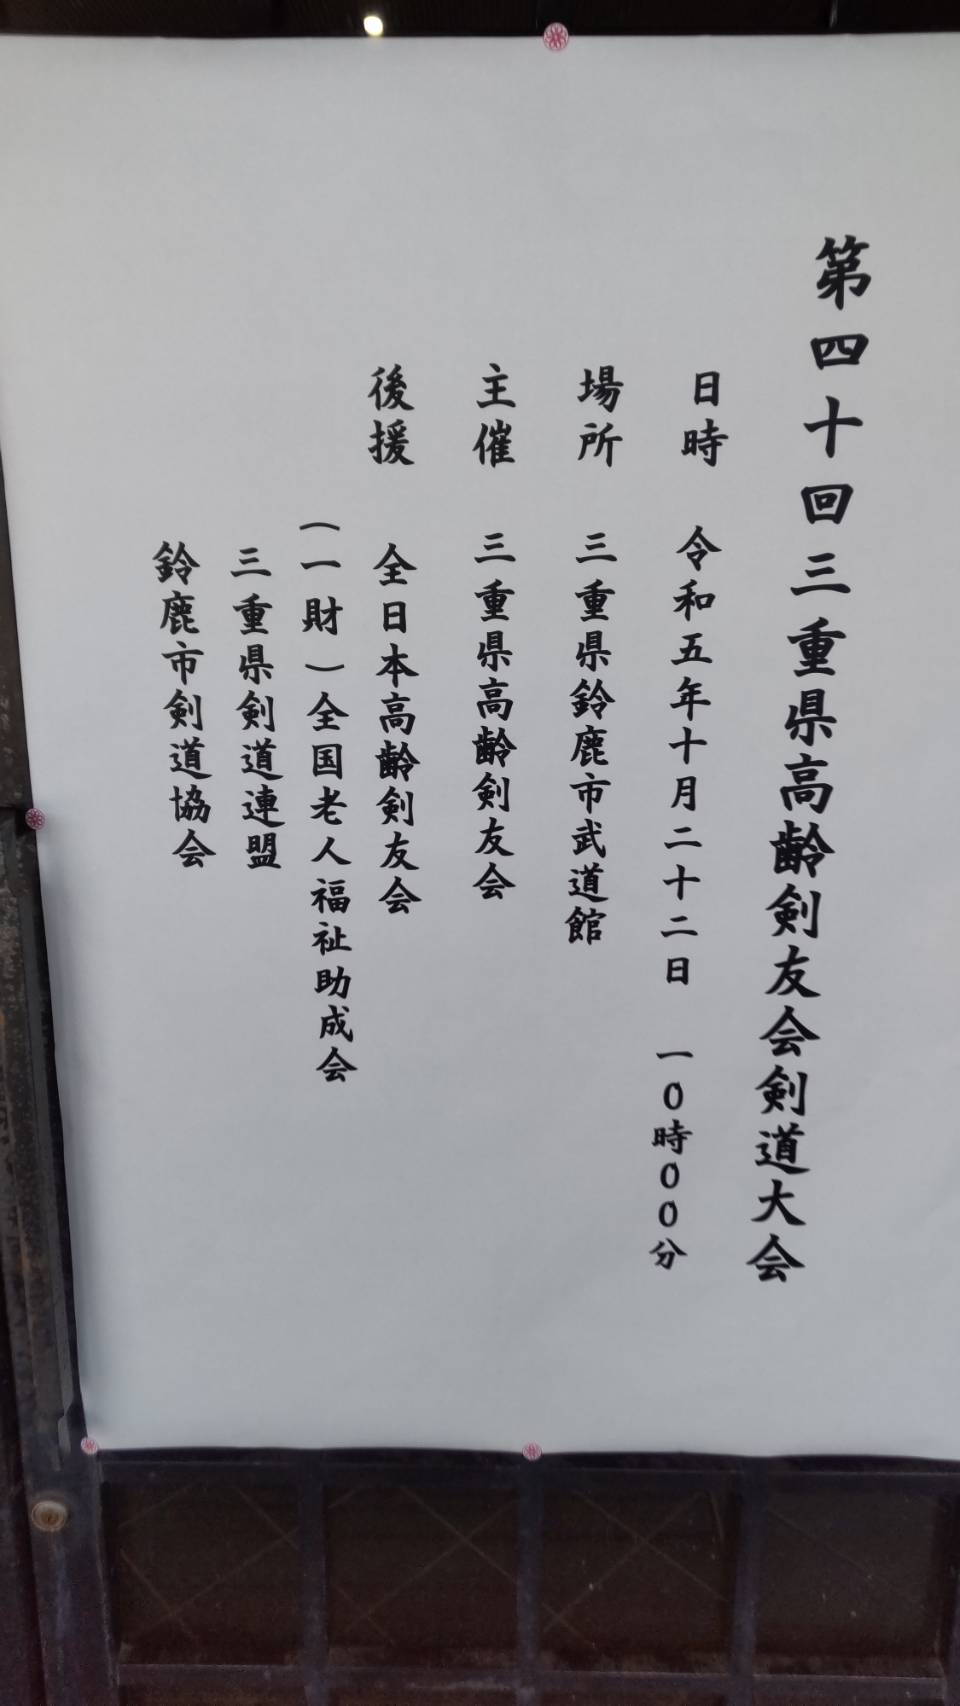 第四十回三重県高齢剣友会剣道大会
日時　令和五年十月二十二日　一０時００分
場所　三重県鈴鹿市武道館
主催　三重県高齢剣友会
後援　全日本高齢剣友会
（一財）全国老人福祉助成会
三重県剣道連盟
鈴鹿市剣道協会